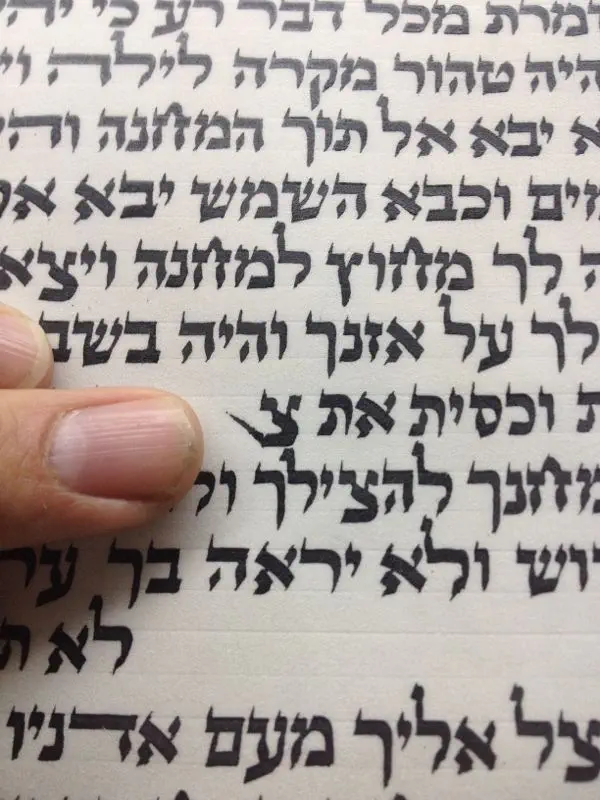 מרת מכל דבר רע כי יה
היה טהור מקרה לילה וי
א יבא אל תוך המחנה והי
מים וכבא השמש יבא א
ה לך מחוץ למחנה ויצא
לך על אזנך והיה בשב
ת וכסית את צ
מחנך להצילך ול
דוש ולא יראה בך ער
לא ת
צל אליך מעם אדניו